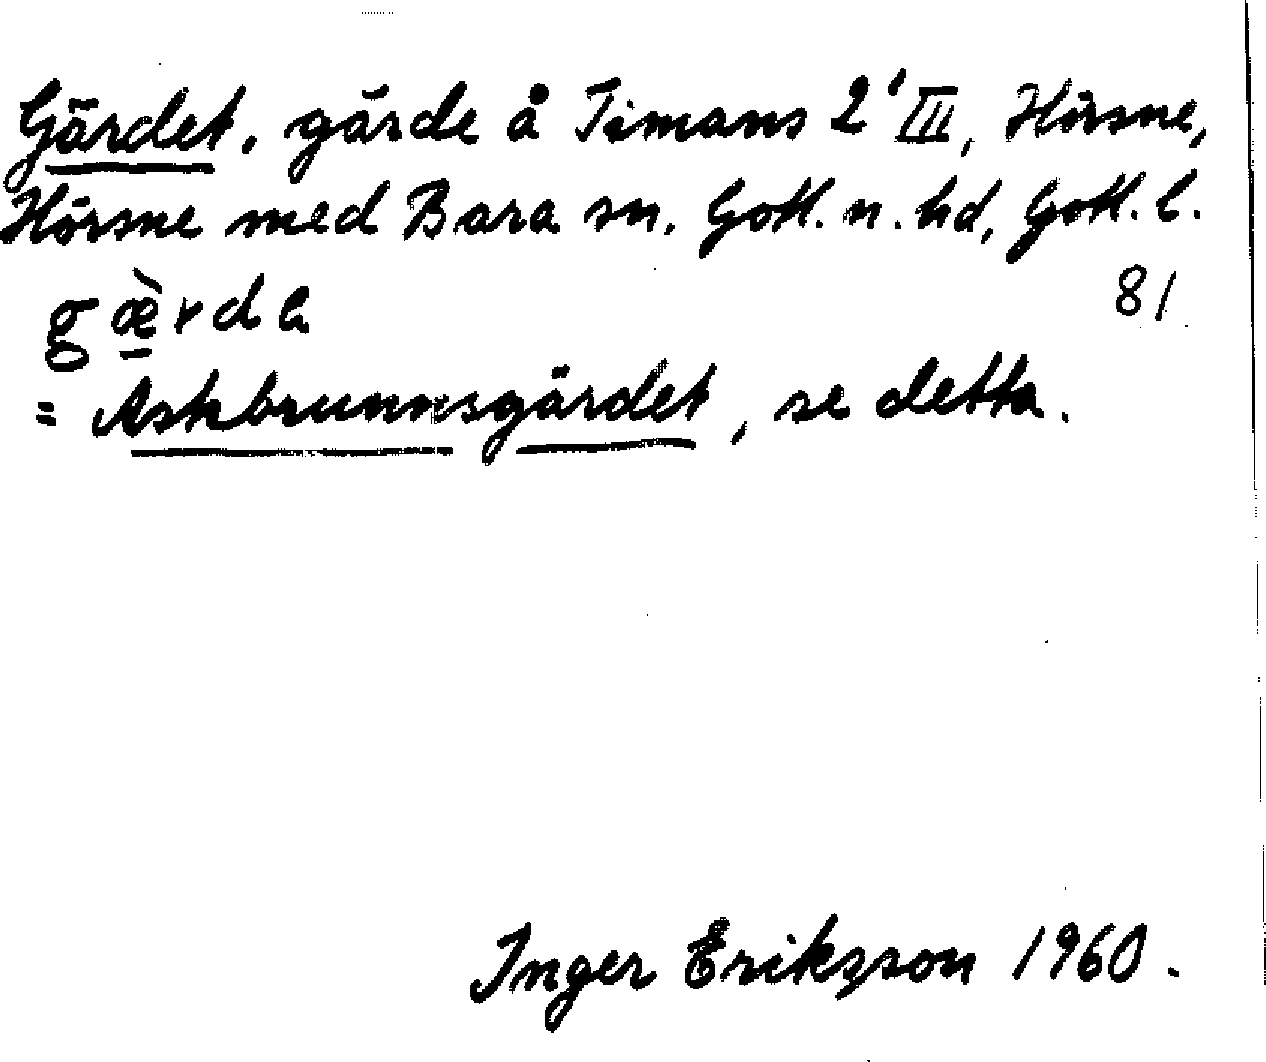 Gärdet, gärde å Timans 2' III, Hörsne,
Hörsne med Bara sn. Gotl. n. hd, Gotl. l.
gæ̀rda 81
= Askbrunnsgärdet, se detta.
Inger Eriksson 1960.